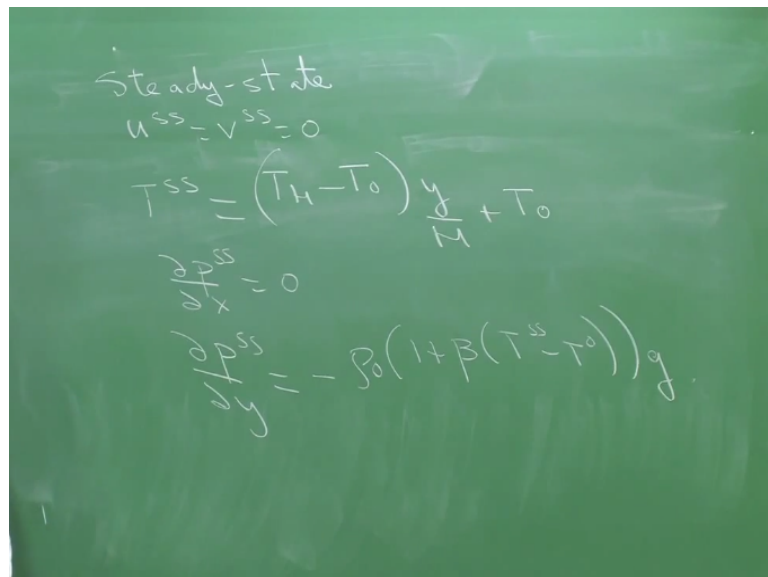 Steady-state
u^ss = v^ss = 0
T^ss = (T_H - T_0) y/H + T_0
∂p^ss/∂x = 0
∂p^ss/∂y = - ρ_0 (1 + β (T^ss - T^0)) g